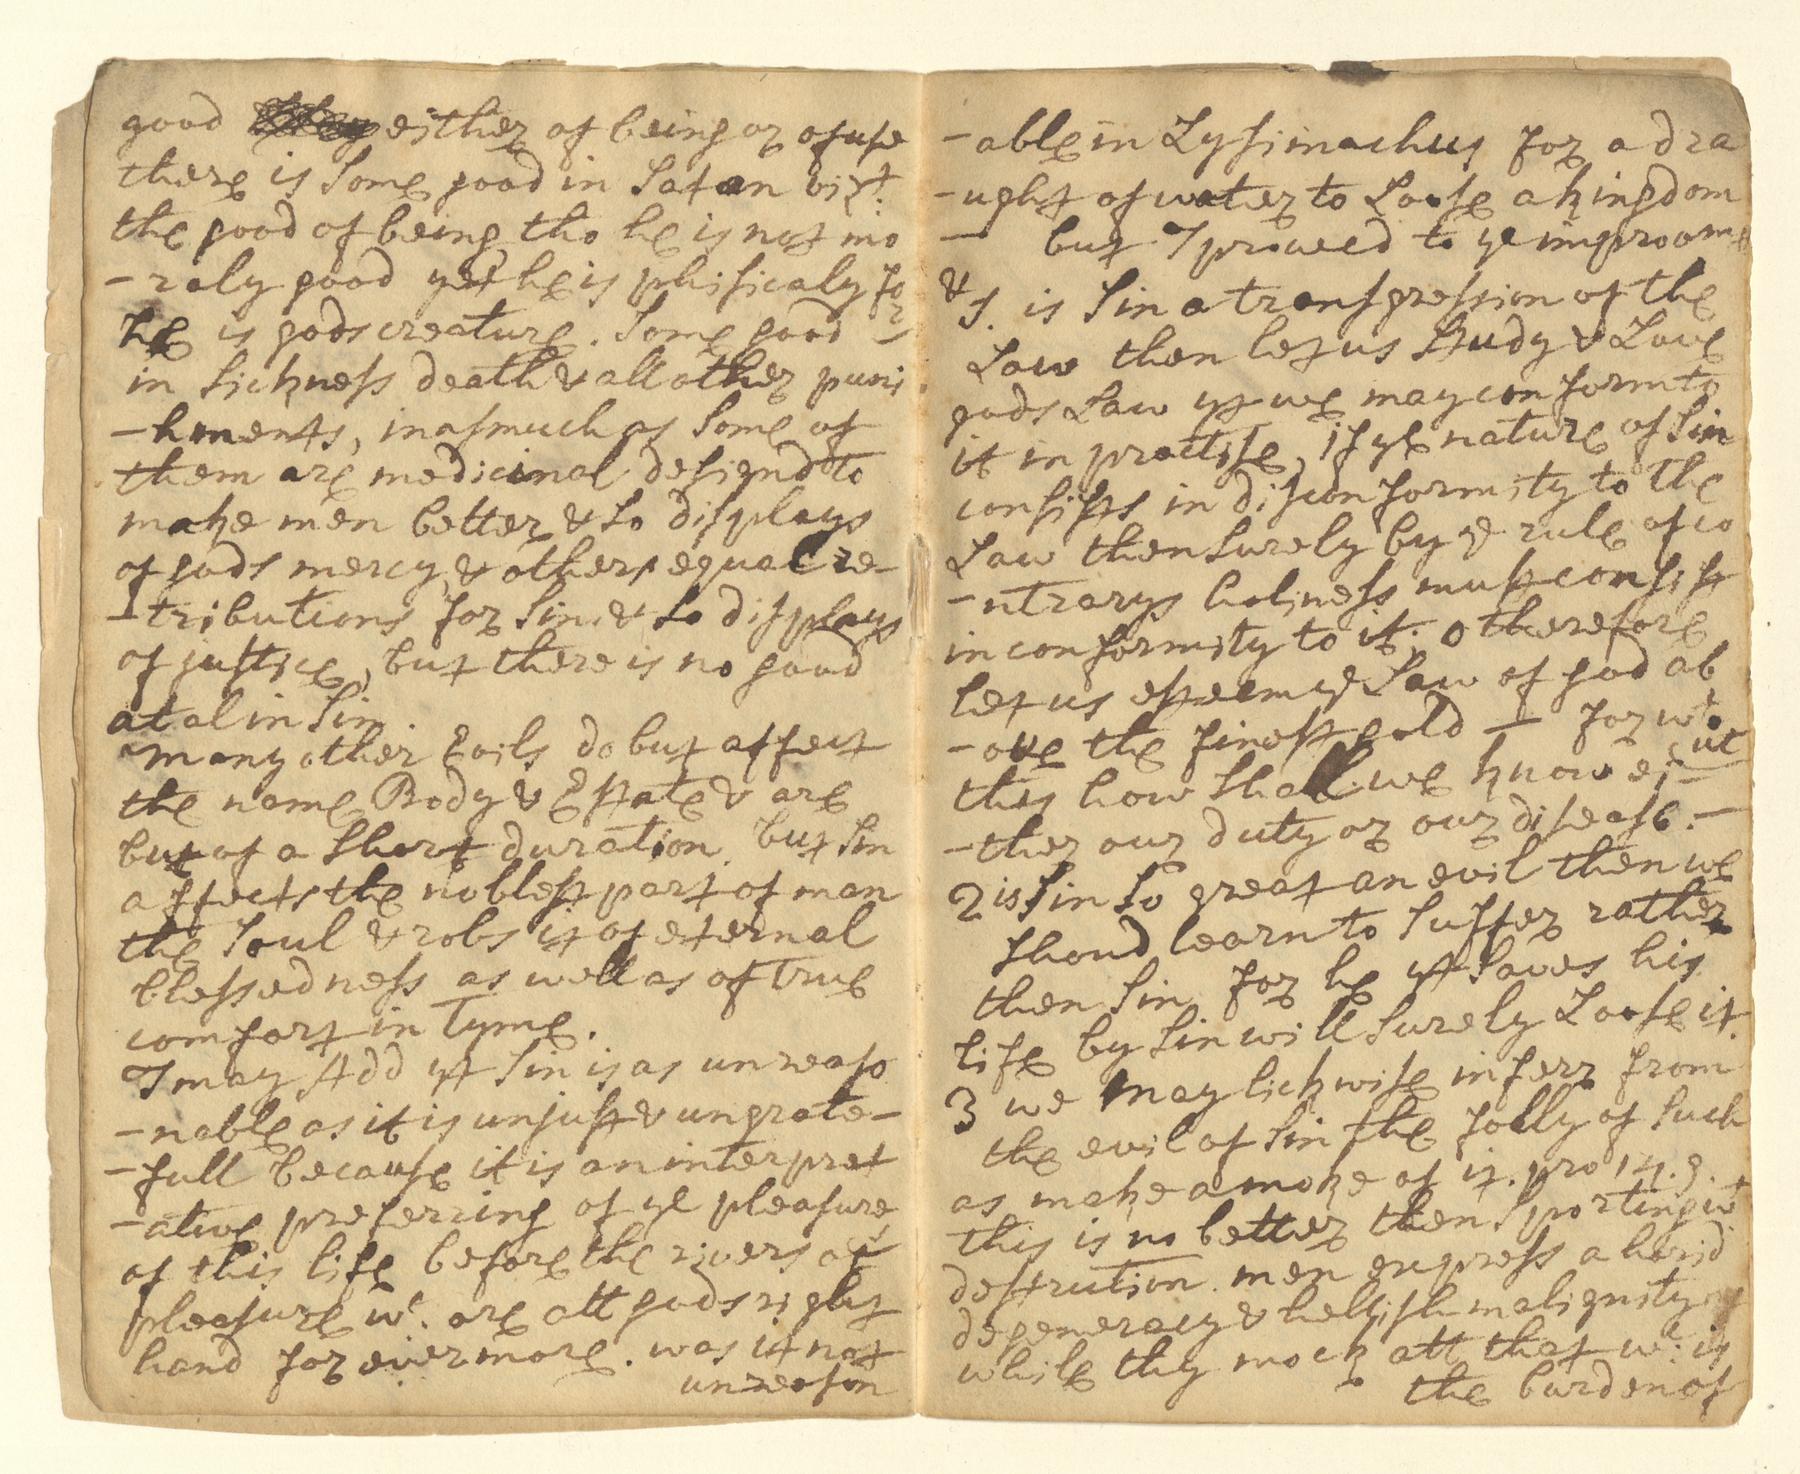 good either of being or of use
there is some good in Satan viz.t
the good of being tho he is not mo
-raly good yet he is phisicaly for
he is gods creature. Some good
in sickness death & all other punis
-hments, inasmuch as some of
them are medicinal designd to
make men better & so displays
of gods mercy, & others equal re-
-tributions for sin. & so displays
of justice, but there is no good
at al in Sin.
Many other Evils do but affect
the name Body & Estate & are
but of a short duration. but sin
affects the noblest part of man
the soul & robs it of eternal
blessedness as well as of true
comfort in Tyme.
I may Add yt sin is as unreaso
-nable as it is unjust & ungrate-
-full because it is an interpret
-ative preferring of ye pleasures
of this life before the rivers of
pleasure wc. are att gods right
hand for evermore. was it not
unreason
-able in Lysimachus for a dra
-ught of water to Loose a kingdom
— but I proceed to ye improvemt
& 1. is sin a transgression of the
Law then let us study & Love
gods Law yt we may conform to
it in practise, if ye nature of sin
consists in disconformity to the
Law then surely by ye rule of co
-ntrarys holiness must consist
in conformity to it. o therefore
let us esteem ye Law of god ab
-ove the finest gold — for wto
ut
this how shall we know ei-
-ther our duty or our disease. —
2 is sin so great an evil then we
shoud learn to suffer rather
then sin, for he yt saves his
life by sin will surely Loose it.
3 we may lickwise inferr from
the evil of sin the folly of such
as make a moke of it. pro 14. 9.
this is no better then sporting wt
destrution. men express a horid
degeneracy & hellish malignity
while thy mock att that wc. is
the burden of